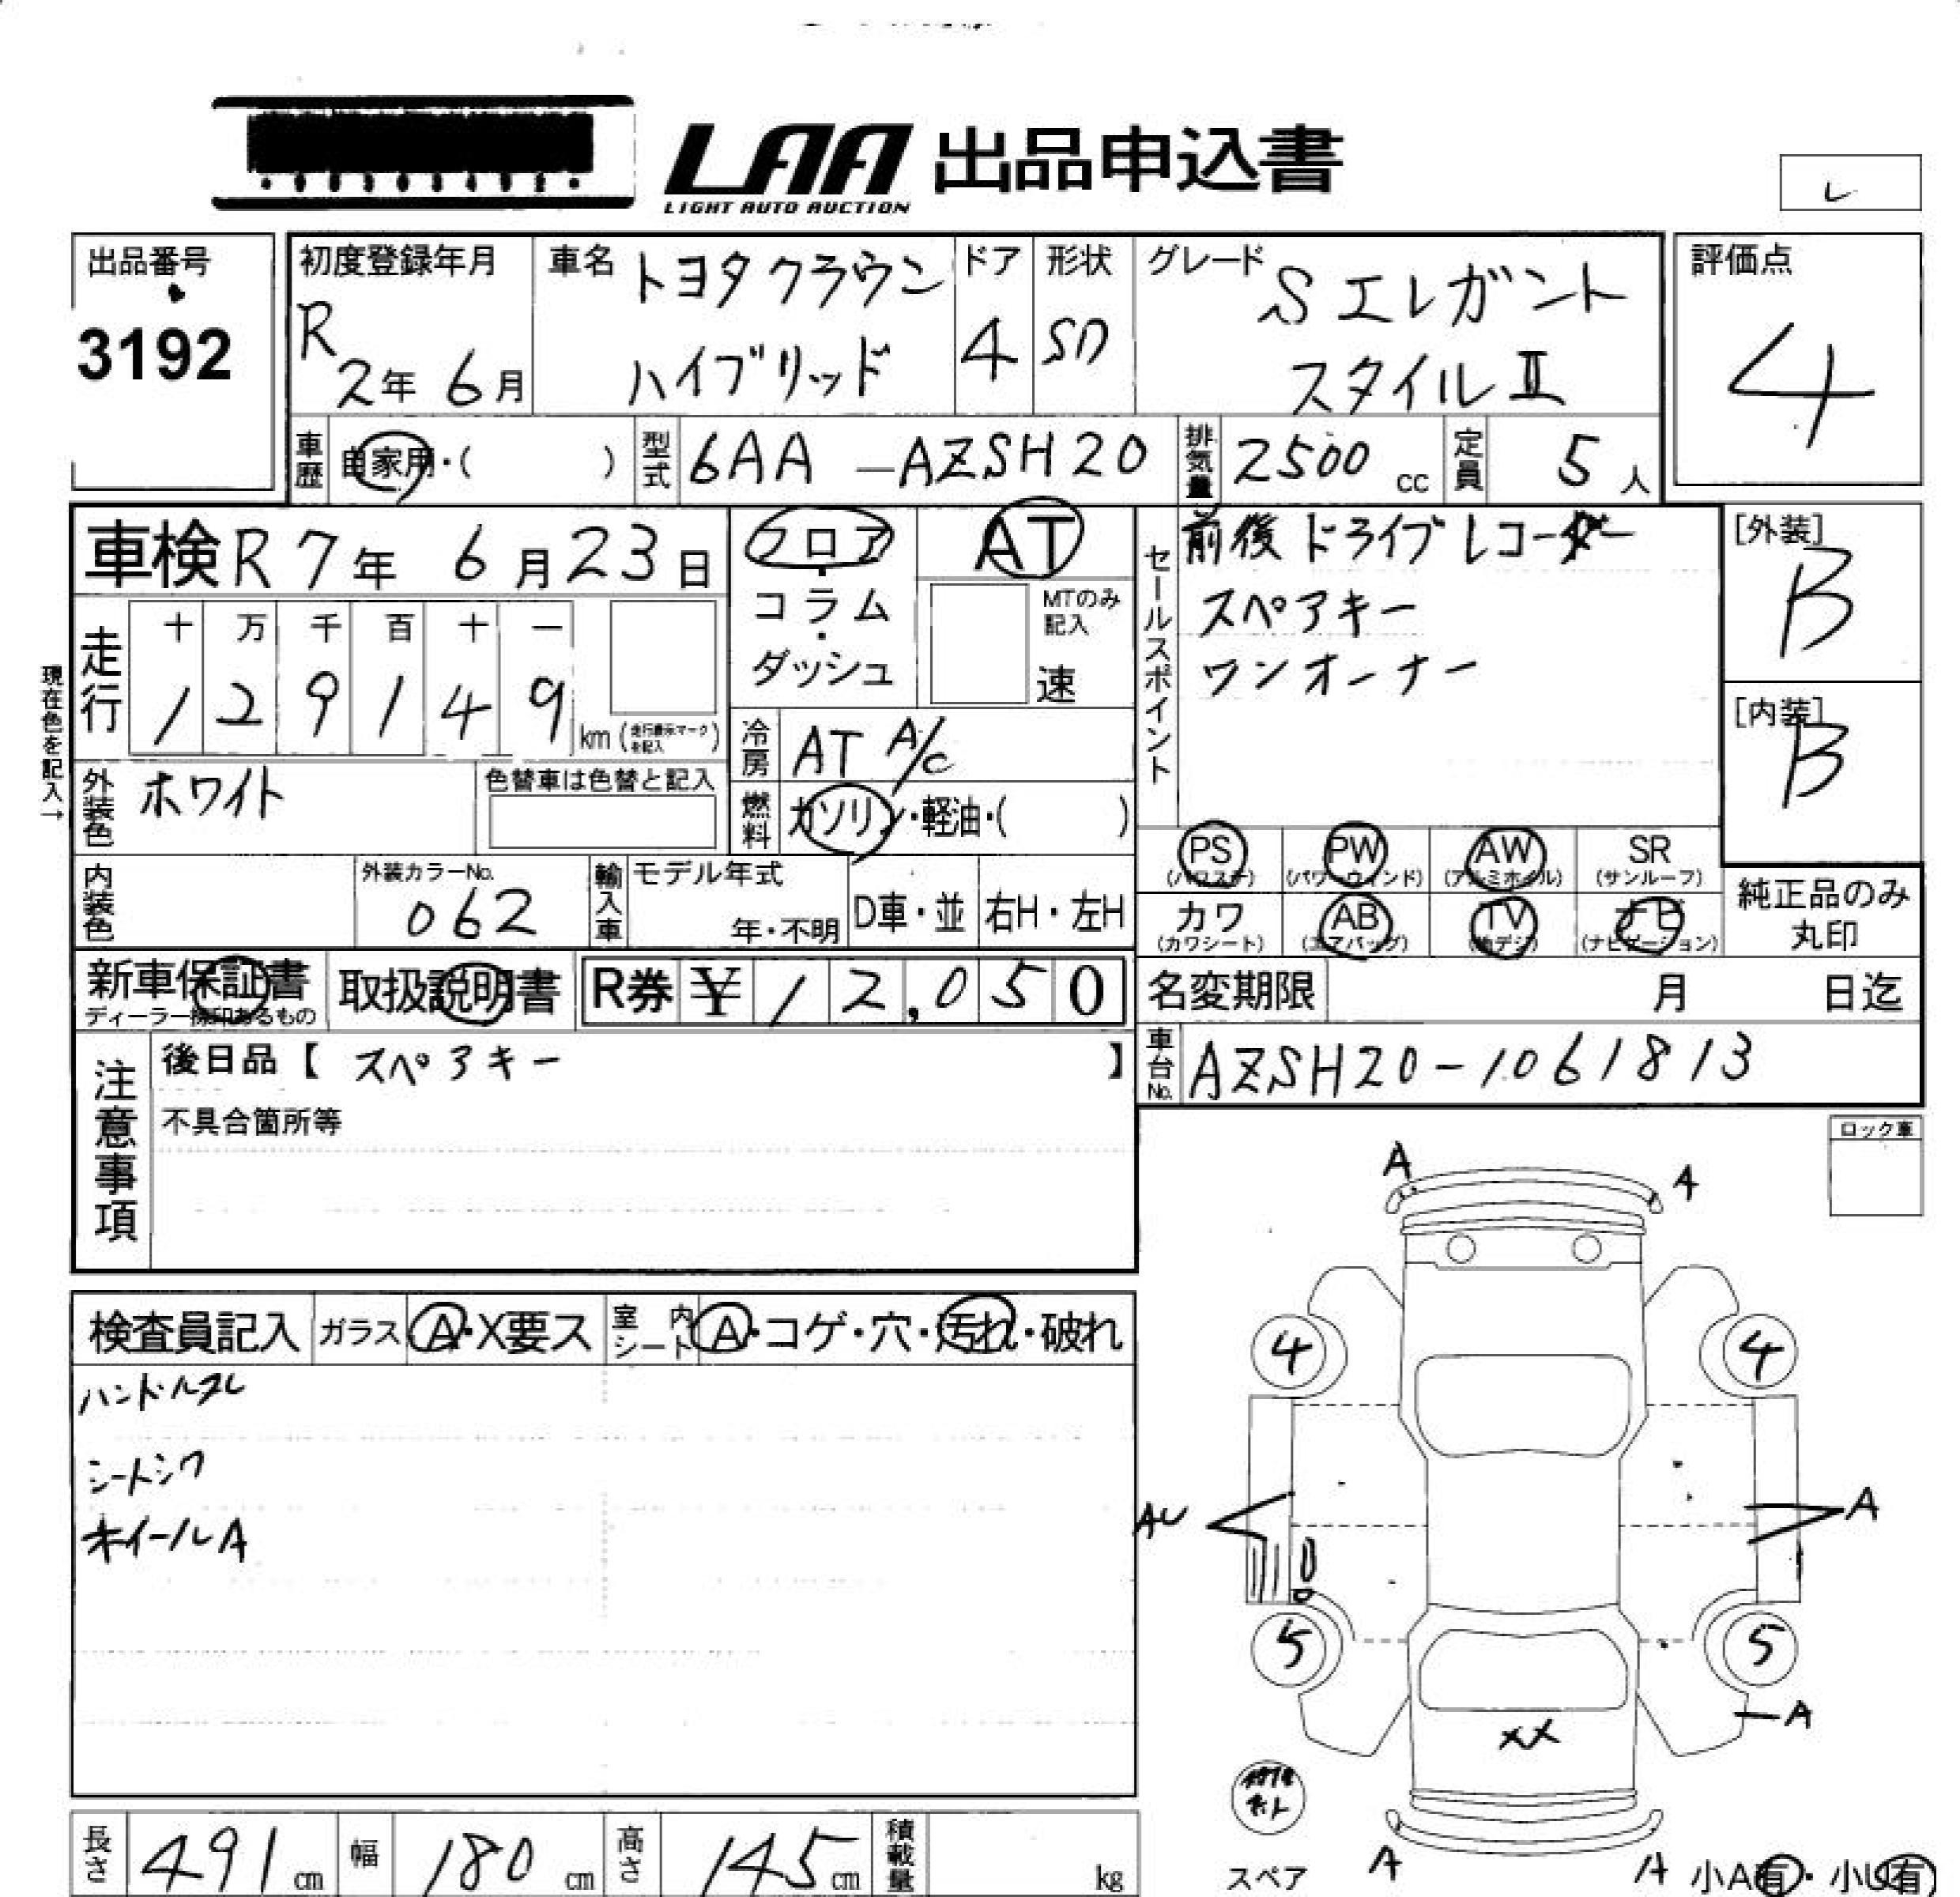 LAA 出品申込書
LIGHT AUTO AUCTION
レ
出品番号
3192
初度登録年月
R
2年 6月
車名 トヨタクラウン
ハイブリッド
ドア
4
形状
SD
グレード Sエレガント
スタイルⅡ
評価点
4
車歴 自家用・( )
型式 6AA-AZSH20
排気量 2500 cc
定員 5 人
車検 R7年 6月23日
フロア
・
コラム
・
ダッシュ
AT
MTのみ
記入
速
セールスポイント
前後ドライブレコーダー
スペアキー
ワンオーナー
[外装]
B
[内装]
B
現在色を記入→
走行
十 万 千 百 十 一
1 2 9 1 4 9 km (走行表示マークを記入)
冷房 AT A/C
外装色 ホワイト
色替車は色替と記入
燃料 ガソリン・軽油・( )
PS (パワステ)
PW (パワーウィンド)
AW (アルミホイル)
SR (サンルーフ)
カワ (カワシート)
AB (エアバッグ)
TV (地デジ)
ナビ (ナビゲーション)
純正品のみ
丸印
内装色
外装カラーNo.
062
輸入車
モデル年式
年・不明
D車・並
右H・左H
新車保証書
ディーラー捺印あるもの
取扱説明書
R券 ¥ 12,050
名変期限 月 日迄
車台No. AZSH20-1061813
注意事項
後日品【 スペアキー 】
不具合箇所等
ロック車
検査員記入
ガラス A・X要ス
室内シート A・コゲ・穴・汚れ・破れ
ハンドルスレ
シートシワ
ホイールA
A
A
4
4
AU
A
5
5
A
XX
A
A
スペア
小A有・小U有
長さ 491 cm
幅 180 cm
高さ 145 cm
積載量 kg